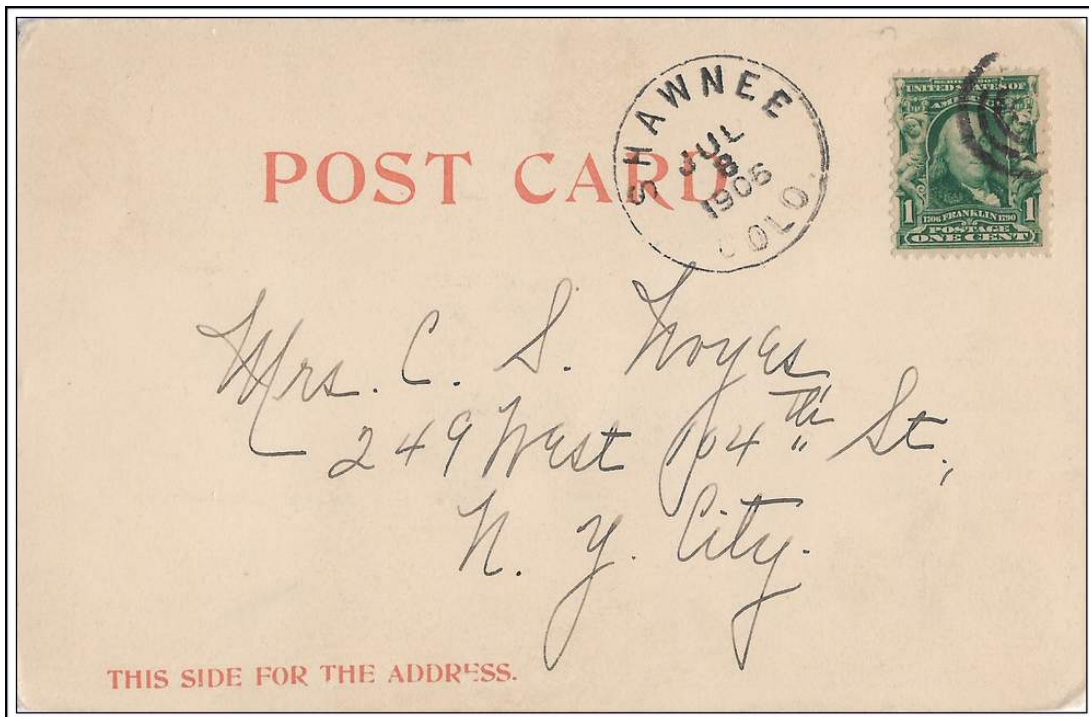 SHAWNEE
JUL
8
1906
COLO.
SERIES 1902
UNITED STATES OF
AMERICA
1 1706 FRANKLIN 1790 1
POSTAGE
ONE CENT
POST CARD
Mrs. C. S. Noyes
249 West 104th St.,
N. Y. City.
THIS SIDE FOR THE ADDRESS.